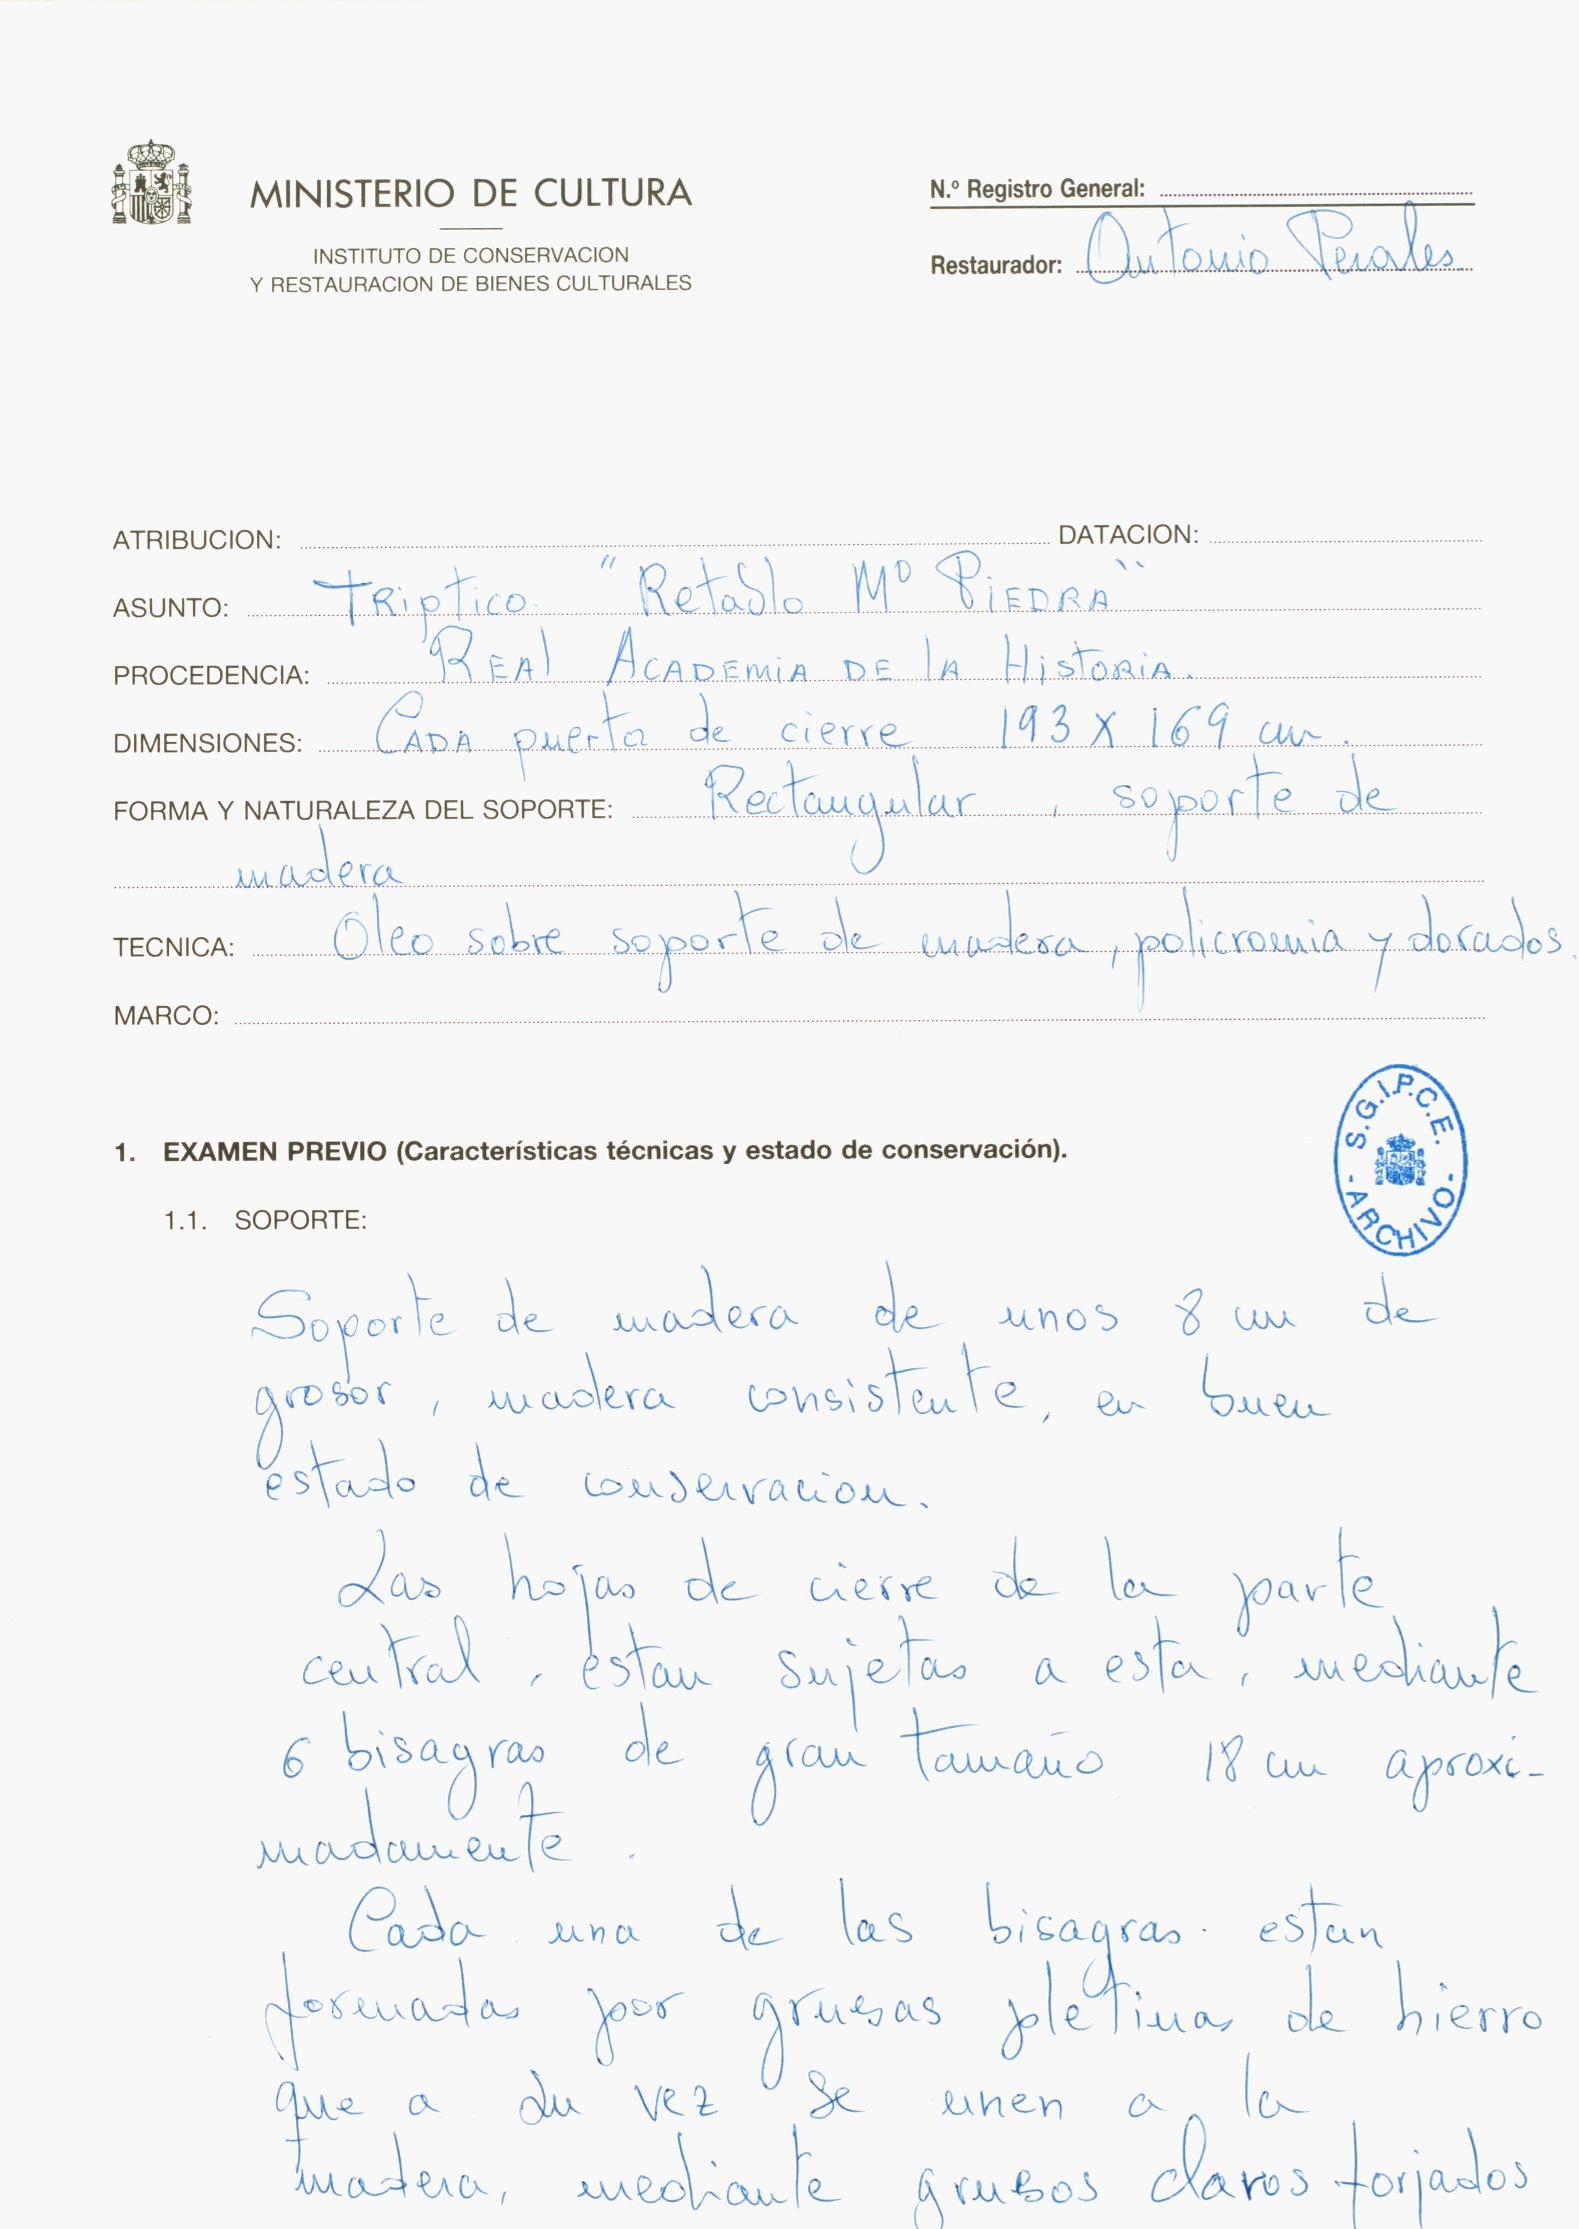 MINISTERIO DE CULTURA
INSTITUTO DE CONSERVACION
Y RESTAURACION DE BIENES CULTURALES
N.º Registro General:
Restaurador: Antonio Perales
ATRIBUCION: DATACION:
ASUNTO: TRIptico "Retablo Mº PIEDRA"
PROCEDENCIA: REAl ACADEMIA DE lA HISTORIA.
DIMENSIONES: CADA puerta de cierre 193 X 169 cm.
FORMA Y NATURALEZA DEL SOPORTE: Rectangular, soporte de
madera
TECNICA: Oleo sobre soporte de madera, policromia y dorados.
MARCO:
S.G.I.P.C.E.
- ARCHIVO -
1. EXAMEN PREVIO (Características técnicas y estado de conservación).
1.1. SOPORTE:
Soporte de madera de unos 8 cm de
grosor, madera consistente, en buen
estado de conservacion.
Las hojas de cierre de la parte
central, estan sujetas a esta, mediante
6 bisagras de gran tamaño 18 cm aproxi-
madamente.
Cada una de las bisagras. estan
formadas por gruesas pletinas de hierro
que a su vez se unen a la
madera, mediante gruesos clavos forjados